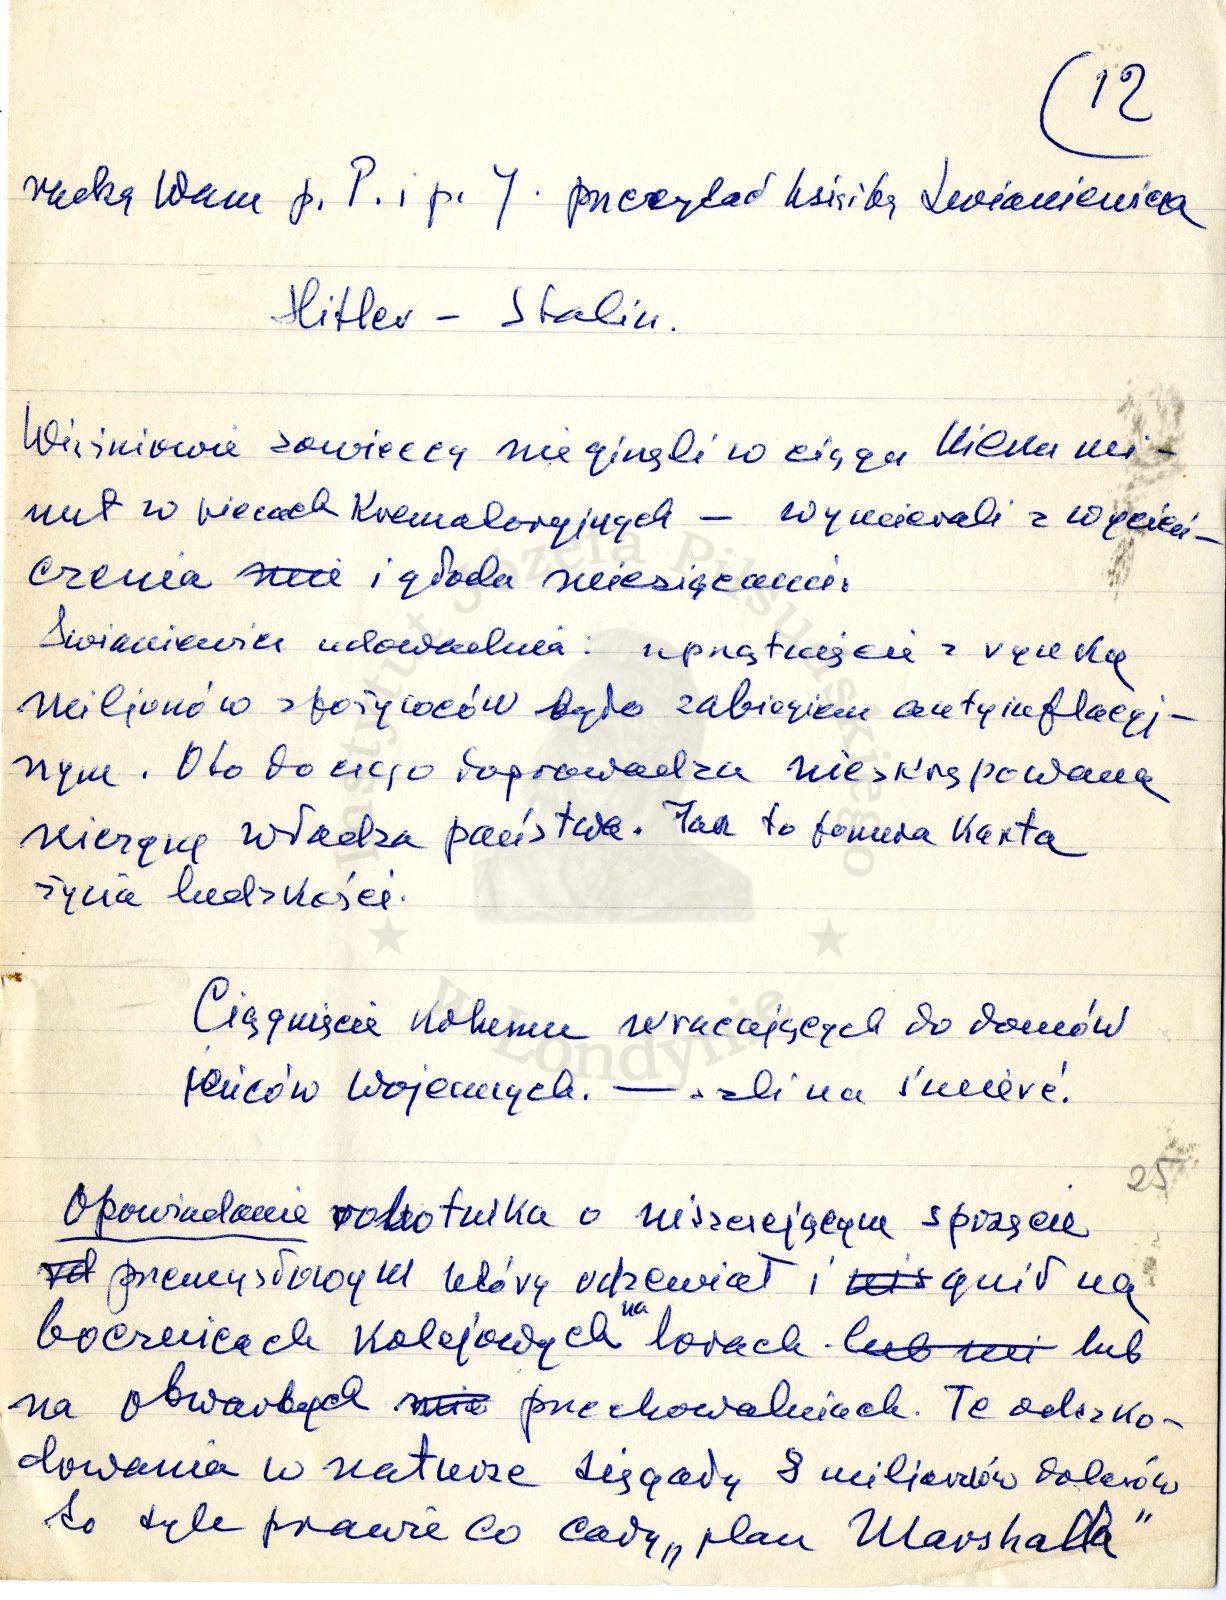 12
radzą Wam p. P. i p. J. przeczytać książkę Swianiewicza
Hitler – Stalin.
Więźniowie sowieccy nie ginęli w ciągu kilku mi-
nut w piecach krematoryjnych – wymierali z wycień-
czenia i głodu miesiącami.
Swianiewicz udowadnia: uprzątnięcie z rynku
miljonów spożywców było zabiegiem antyinflacyj-
nym. Oto do czego doprowadza nieskrępowana
niczym władza państwa. Jak to ponura karta
życia ludzkości.
Ciągnięcie wracających do domów
jeńców wojennych. — szli na śmierć.
25
Opowiadanie robotnika o niszczejącym sprzęcie
przemysłowym który rdzewiał i gnił na
bocznicach kolejowych na torach lub ni lub
na otwartych przechowalniach. Te odszko-
dowania w naturze sięgały 8 miliardów dolarów
to tyle prawie co cały „plan Marshalla"
Instytut Józefa Piłsudskiego
w Londynie